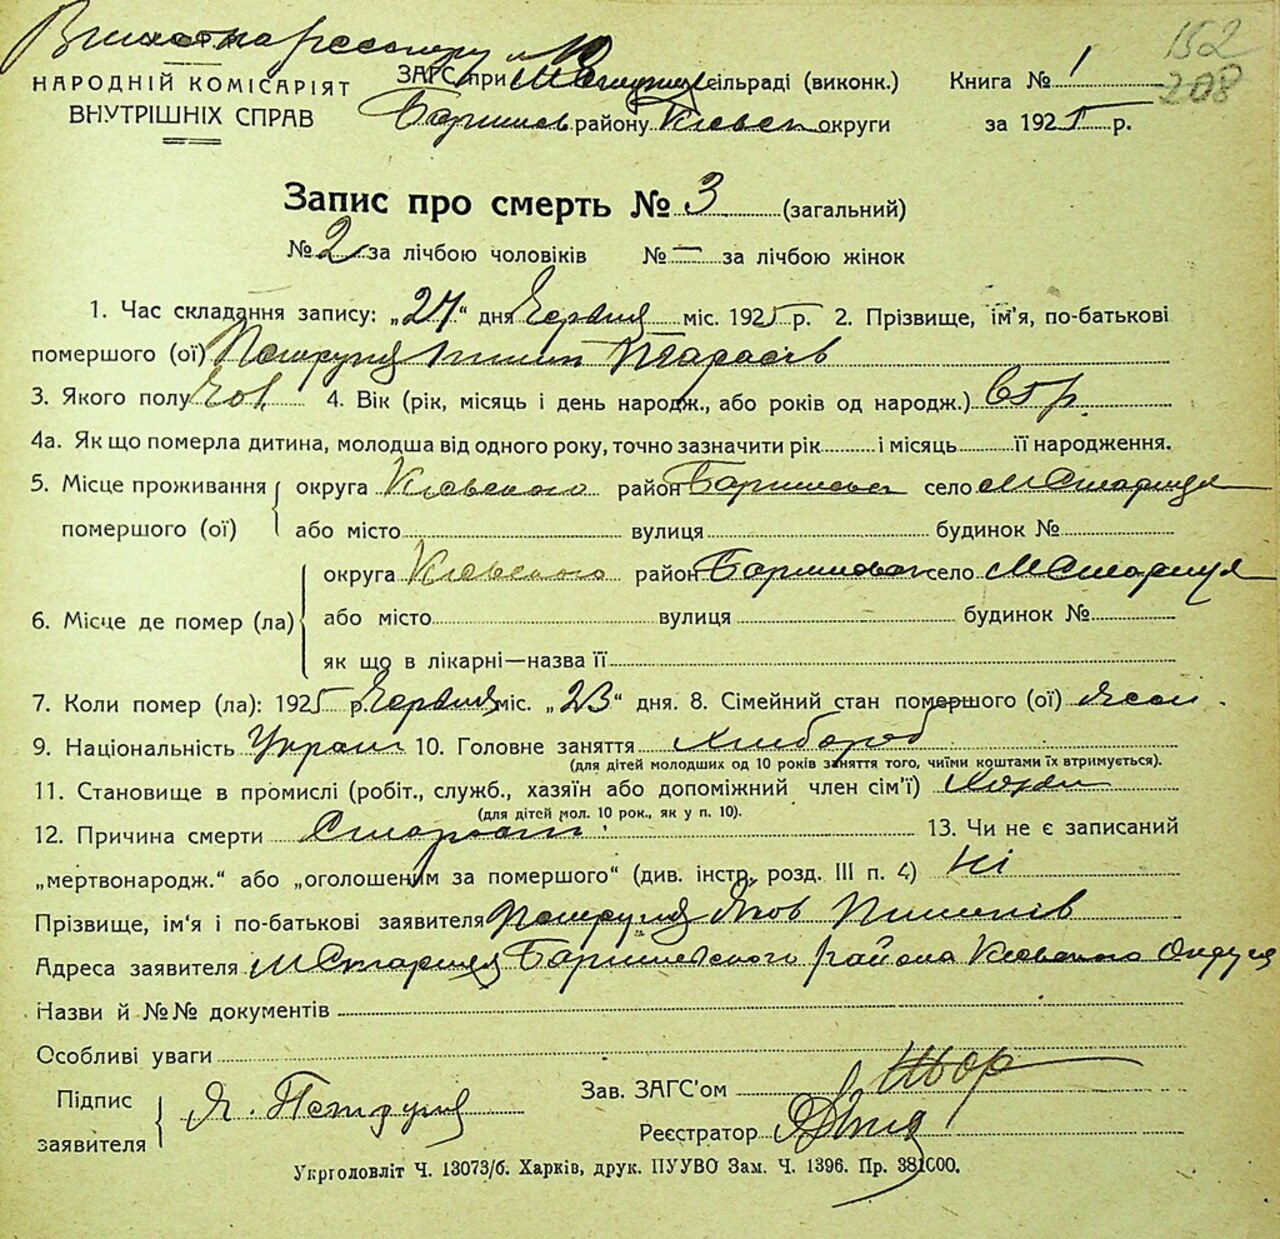 152
208
НАРОДНІЙ КОМІСАРІЯТ
ВНУТРІШНІХ СПРАВ
ЗАГС при сільраді (виконк.)
Баришев. району Київськ округи
Книга № 1
за 1925 р.
Запис про смерть № 3 (загальний)
№ 2 за лічбою чоловіків № — за лічбою жінок
1. Час складання запису: „27“ дня Червня міс. 1925 р. 2. Прізвище, ім'я, по-батькові
помершого (ої) Петруня Пилип Тарасів
3. Якого полу Чол. 4. Вік (рік, місяць і день народж., або років од народж.) 65 р.
4а. Як що померла дитина, молодша від одного року, точно зазначити рік і місяць її народження.
5. Місце проживання помершого (ої)
округа Київского район Баришевск село М Стариця
або місто вулиця будинок №
6. Місце де помер (ла)
округа Київского район Баришевск село М Стариця
або місто вулиця будинок №
як що в лікарні—назва її
7. Коли помер (ла): 1925 р. Червня міс. „23“ дня. 8. Сімейний стан помершого (ої)
9. Національність Украін 10. Головне заняття Хлібороб
(для дітей молодших од 10 років заняття того, чиїми коштами їх втримується).
11. Становище в промислі (робіт., служб., хазяїн або допоміжний член сім'ї) Хозяін
(для дітей мол. 10 рок., як у п. 10).
12. Причина смерти 13. Чи не є записаний
„мертвонародж.“ або „оголошеним за помершого“ (див. інстр. розд. III п. 4) Ні
Прізвище, ім'я і по-батькові заявителя Петруня Яков Пилипів
Адреса заявителя М Стариця Баришевского района Київського Округа
Назви й №№ документів
Особливі уваги
Підпис заявителя Я. Петруня
Зав. ЗАГС'ом
Реєстратор
Укрголовліт Ч. 13073/б. Харків, друк. ПУУВО Зам. Ч. 1396. Пр. 381000.